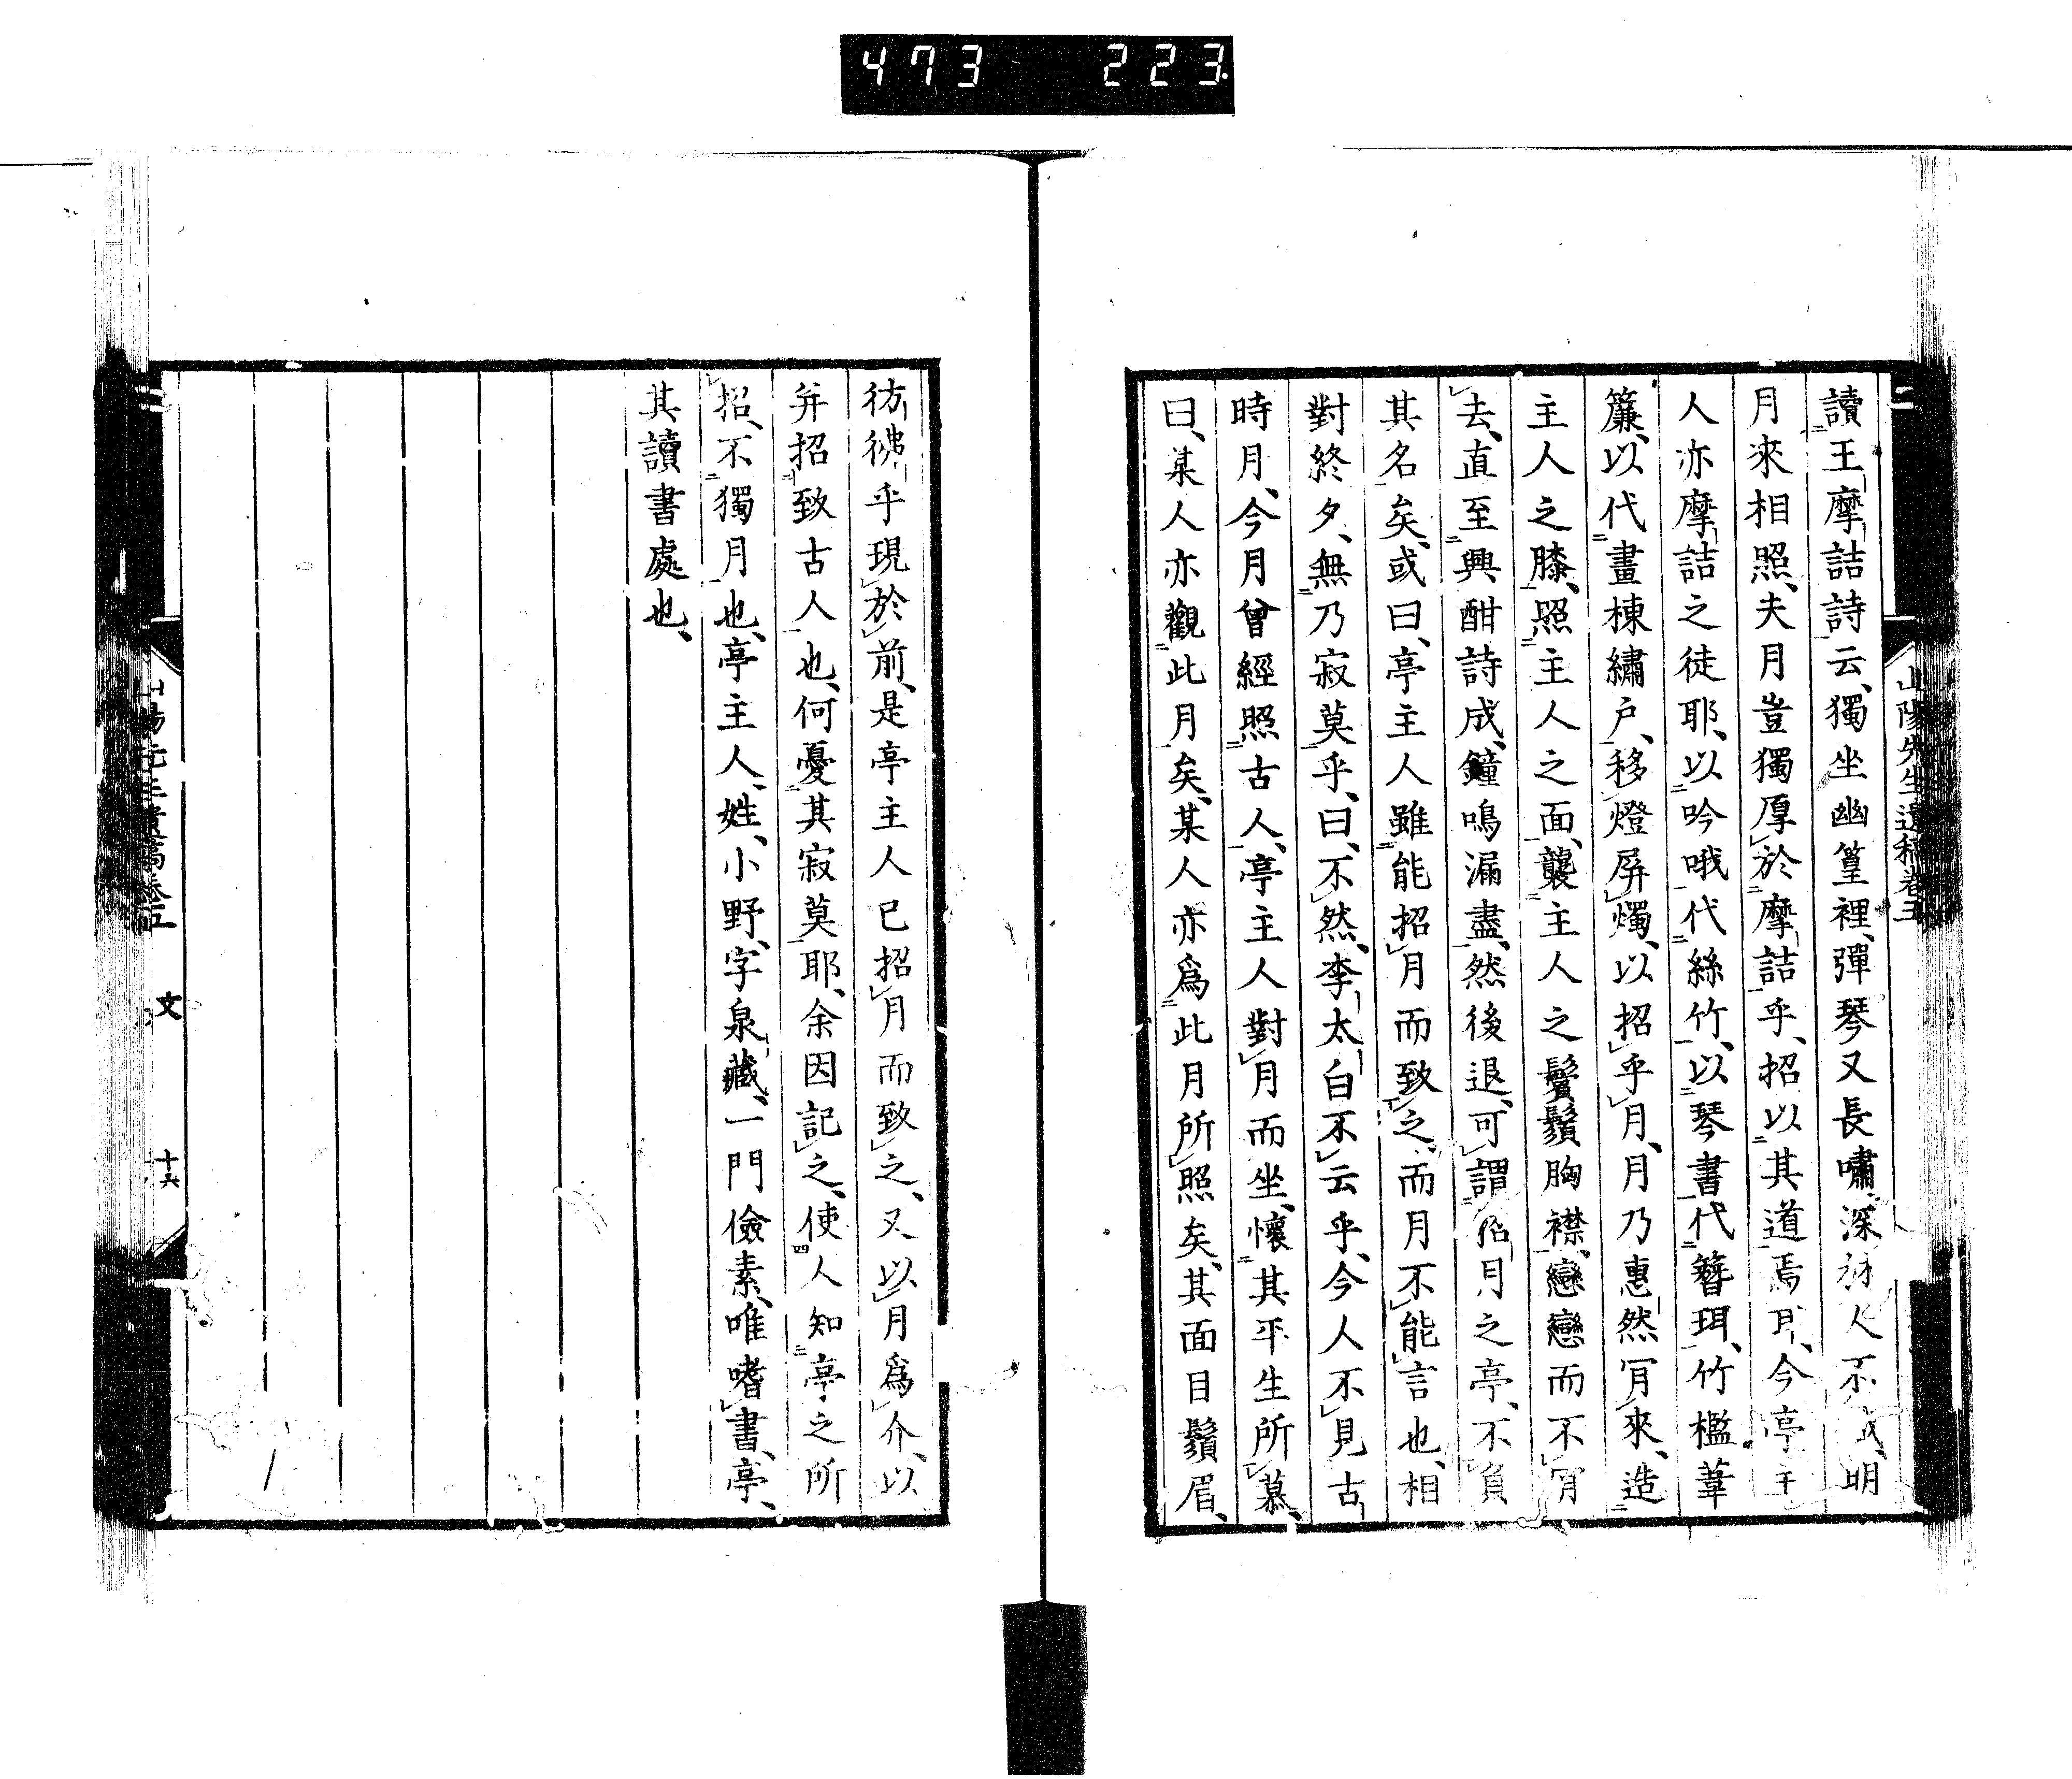 473 223
山陽先生遺稿卷五
讀王摩詰詩云、獨坐幽篁裡、彈琴又長嘯、深林人不、明
月來相照、夫月豈獨厚於摩詰乎、招以其道焉耳、今亭主
人亦摩詰之徒耶、以吟哦代絲竹、以琴書代簪珥、竹檻葦
簾、以代畫棟繡戶、移燈屏燭、以招乎月、月乃惠然肎來、造
主人之膝、照主人之面、襲主人之鬢鬚胸襟、戀戀而不肎
去、直至興酣詩成、鐘鳴漏盡、然後退、可謂招月之亭、不負
其名矣、或曰、亭主人雖能招月而致之、而月不能言也、相
對終夕、無乃寂莫乎、曰、不然、李太白不云乎、今人不見古
時月、今月曾經照古人、亭主人對月而坐、懷其平生所慕、
曰、某人亦觀此月矣、某人亦爲此月所照矣、其面目鬚眉、
彷彿乎現於前、是亭主人已招月而致之、又以月爲介、以
并招致古人也、何憂其寂莫耶、余因記之、使人知亭之所
招、不獨月也、亭主人、姓小野、字泉藏、一門儉素、唯嗜書、亭、
其讀書處也、
山陽先生遺稿卷五 文 十六